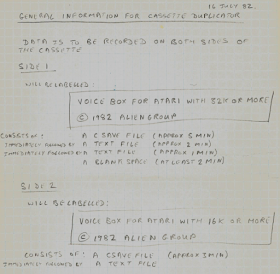 16 JULY 82.
GENERAL INFORMATION FOR CASSETTE DUPLICATOR
DATA IS TO BE RECORDED ON BOTH SIDES OF
THE CASSETTE
SIDE 1
WILL BE LABELLED:
VOICE BOX FOR ATARI WITH 32K OR MORE
© 1982 ALIEN GROUP
CONSISTS OF: A CSAVE FILE (APPROX 3 MIN)
IMMEDIATELY FOLLOWED BY A TEXT FILE (APPROX 2 MIN)
IMMEDIATELY FOLLOWED BY A TEXT FILE (APPROX 1 MIN)
A BLANK SPACE (AT LEAST 2 MIN)
SIDE 2
WILL BE LABELLED:
VOICE BOX FOR ATARI WITH 16K OR MORE
© 1982 ALIEN GROUP
CONSISTS OF: A CSAVE FILE (APPROX 1 MIN)
IMMEDIATELY FOLLOWED BY A TEXT FILE